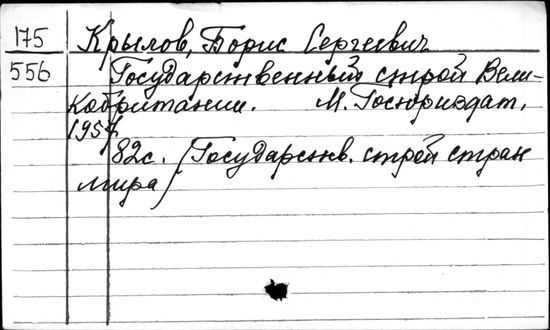 175 Крылов, Борис Сергеевич
556 Государственный строй Вели-
кобритании. М. Госюриздат,
1957.
82с. (Государств. строй стран
мира)